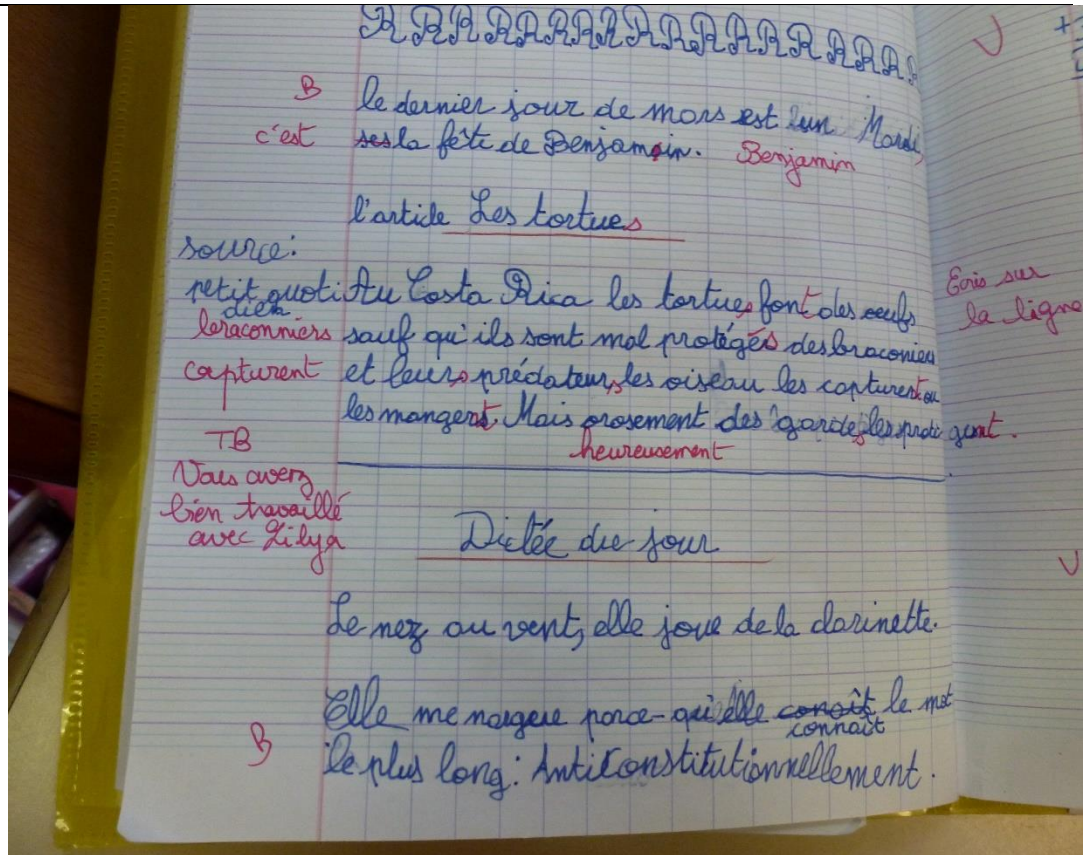 R R R R R R R R R R R R R R R R R
B le dernier jour de mars est un Mardi,
c'est ses la fête de Benjamin. Benjamin
l'article Les tortues
source:
petit quoti Au Costa Rica les tortues font des oeufs Ecris sur
dien la ligne
braconniers sauf qu'ils sont mal protégés des braconiers
capturent et leurs prédateurs, les oiseau les capturent ou
les mangent. Mais orosement des gardes les protègent.
TB heureusement
Vous avez
bien travaillé
avec Lilya
Dictée du jour
Le nez au vent, elle joue de la clarinette.
Elle me nargue parce-qu'elle conait le mot
connaît
B le plus long: Anticonstitutionnellement.